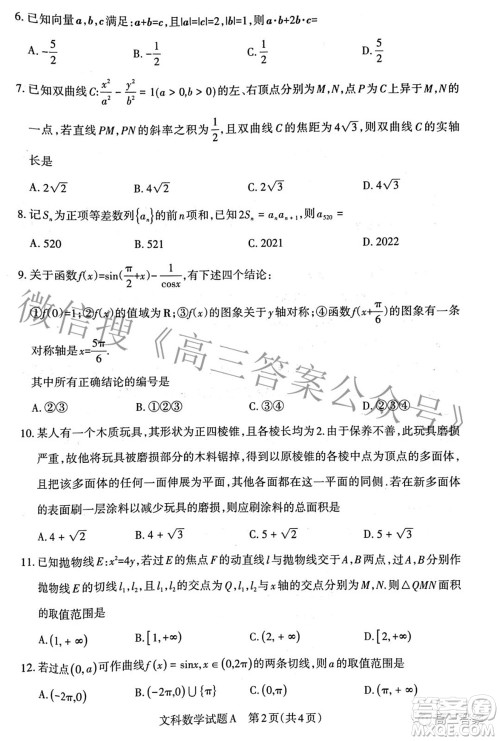 6. 已知向量a,b,c满足:a+b=c,且|a|=|b|=2,|c|=1,则a·b+2b·c=
A. -5/2 B. -1/2 C. 1/2 D. 5/2
7. 已知双曲线C: x²/a² - y²/b² = 1(a>0,b>0)的左、右顶点分别为M,N,点P为C上异于M,N的
一点,若直线PM,PN的斜率之积为1/2,且双曲线C的焦距为4√3,则双曲线C的实轴
长是
A. 2√2 B. 4√2 C. 2√3 D. 4√3
8. 记Sₙ为正项等差数列{aₙ}的前n项和,已知2Sₙ=aₙaₙ₊₁,则a₅₂₀=
A. 520 B. 521 C. 2021 D. 2022
9. 关于函数f(x)=sin(π/2+x)-1/cosx,有下述四个结论:
①f(0)=1;②f(x)的值域为R;③f(x)的图象关于y轴对称;④f(x+π/6)的图象有一条
对称轴是x=5π/6.
其中所有正确结论的编号是
A. ②③ B. ①③ C. ③④ D. ②③④
10. 某人有一个木质玩具,其形状为正四棱锥,且各棱长均为2.由于保养不善,此玩具磨损
严重,故他将玩具被磨损部分的木料锯掉,并以原几何体的各棱中点为顶点的多面体
作为新的玩具,恰好原几何体被磨损部分全部锯掉,且该多面体无任何磨损.现需给此
多面体的表面刷涂料以减少玩具的磨损,则应刷涂料的总面积是
A. 4+√2 B. 4+√3 C. 2+√2 D. 2+√3
11. 已知抛物线E:x²=4y,过E的焦点F的动直线l与抛物线交于A,B两点,过A,B分别作
抛物线E的切线l₁,l₂,l₁与l₂的交点为Q,l₁,l₂与x轴的交点分别为M,N,则△QMN面积
的取值范围是
A. (1,+∞) B. [1,+∞) C. (1/2,+∞) D. [1/2,+∞)
12. 若过点(0,a)可作曲线f(x)=sinx,x∈(0,2π)的两条切线,则a的取值范围是
文科数学试题A 第2页(共4页)
微信搜《高三答案公众号》
高三答案